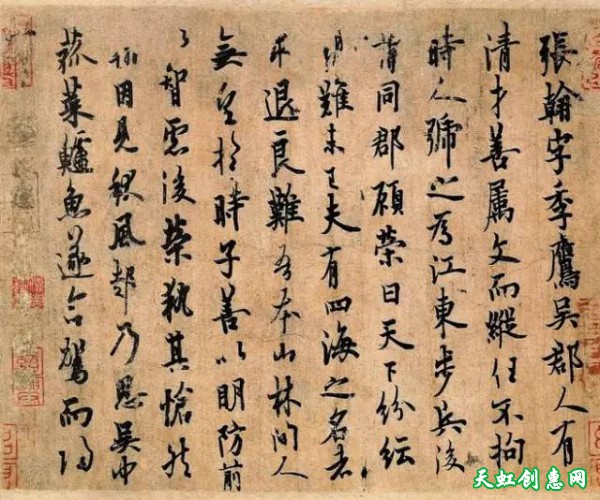 張翰字季鷹吳郡人有
清才善属文而縱任不拘
時人號之為江東步兵後
謂同郡顧榮曰天下紛紜
禍難未已夫有四海之名者
求退良難吾本山林間人
無望於時子善以明防前
以智慮後榮執其愴然
翰因見秋風起乃思吳中
菰菜鱸魚遂命駕而歸
天虹创惠网